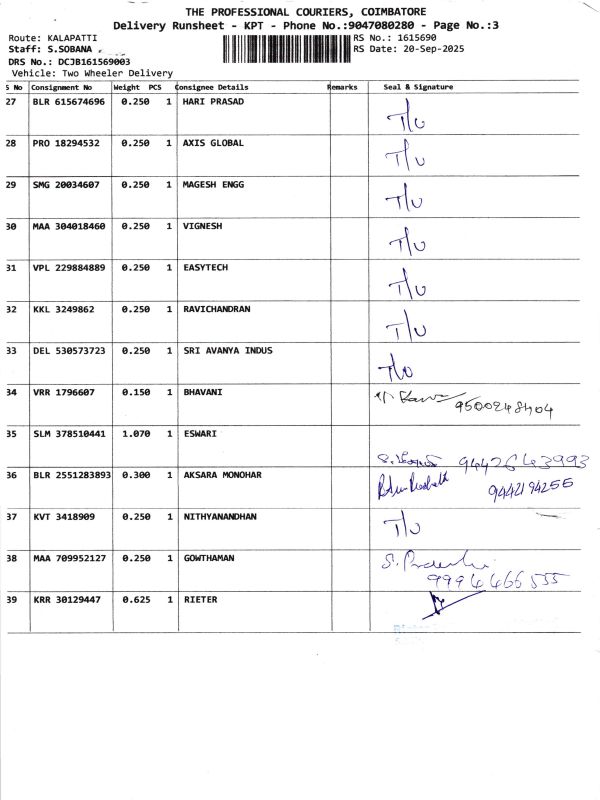 THE PROFESSIONAL COURIERS, COIMBATORE
Delivery Runsheet - KPT - Phone No.:9047080280 - Page No.:3
Route: KALAPATTI
RS No.: 1615690
Staff: S.SOBANA
RS Date: 20-Sep-2025
DRS No.: DCJB161569003
Vehicle: Two Wheeler Delivery
S No Consignment No Weight PCS Consignee Details Remarks Seal & Signature
27 BLR 615674696 0.250 1 HARI PRASAD T/U
28 PRO 18294532 0.250 1 AXIS GLOBAL T/U
29 SMG 20034607 0.250 1 MAGESH ENGG T/U
30 MAA 304018460 0.250 1 VIGNESH T/U
31 VPL 229884889 0.250 1 EASYTECH T/U
32 KKL 3249862 0.250 1 RAVICHANDRAN T/U
33 DEL 530573723 0.250 1 SRI AVANYA INDUS T/U
34 VRR 1796607 0.150 1 BHAVANI
9500248404
35 SLM 378510441 1.070 1 ESWARI
9442643993
36 BLR 2551283893 0.300 1 AKSARA MONOHAR
9442194255
37 KVT 3418909 0.250 1 NITHYANANDHAN T/U
38 MAA 709952127 0.250 1 GOWTHAMAN
9994466555
39 KRR 30129447 0.625 1 RIETER